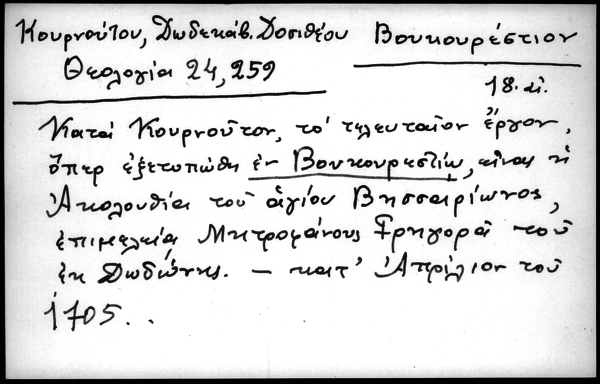 Κουρνούτου, Δωδεκάβ. Δοσιθέου Βουκουρέστιον
Θεολογία 24, 259
18. αἰ.
Κατά Κουρνοῦτον, τό τελευταῖον ἔργον,
ὅπερ ἐξετυπώθη ἐν Βουκουρεστίῳ, εἶναι ἡ
Ἀκολουθία τοῦ ἁγίου Βησσαρίωνος,
ἐπιμελείᾳ Μητροφάνους Γρηγορᾶ τοῦ
ἐκ Δωδώνης. – κατ' Ἀπρίλιον τοῦ
1705..